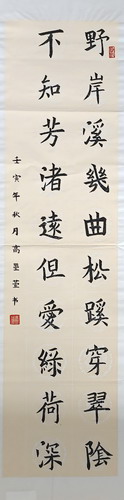 野岸溪幾曲松蹊穿翠陰
不知芳渚遠但愛綠荷深
壬寅年秋月高墨萱书